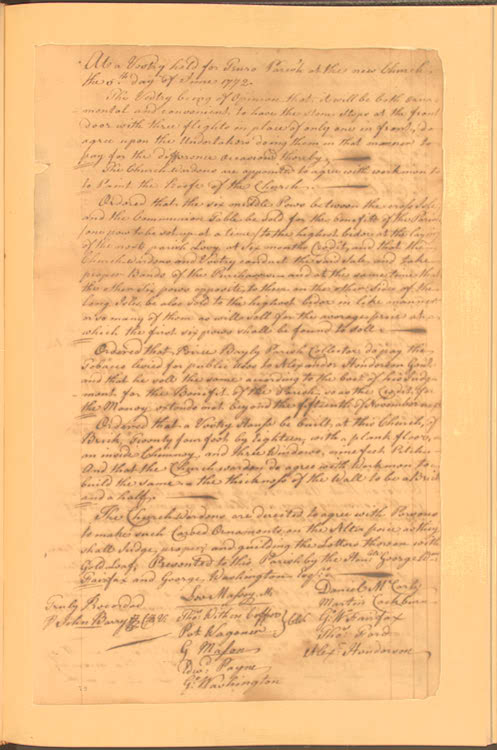 At a Vestry held for Truro Parish at the new Church
the 5th day of June 1772.
The Vestry being of Opinion that it will be both orna-
mental and convenient, to have the stone steps at the front
door with three flights in place of only one in front, do
agree upon the Undertakers doing them in that manner to
pay for the difference occasiond thereby.
The Church wardens are appointed to agree with workmen to
to Paint the Roofe of the Church.
Ordered that the six middle Pews between the cross Isle
and the Communion Table be sold for the benefit of the Parish
(one pew to be set up at a time) to the highest bidder at the laying
of the next parish Levy at Six months Credit, and that the
Church wardens and Vestry conduct the said Sale, and take
proper Bonds of the Purchasers and at the same time that
the other Six pews opposite to them on the other side of the
long Isle, be also Sold to the highest bidder in like manner
or so many of them as will sell for the average price at
which the first six pews shall be found to sell
Ordered that Peirce Bayly Parish Collector do pay the
Tobacco levied for public Uses to Alexander Henderson Gent.
and that he sell the same according to the best of his Judge-
ment, for the Benefit of the Parish, so as the Credit for
the Money extends not beyond the fifteenth of November next
Ordered that a Vestry House be built, at this Church, of
Brick, Twenty four foot by Eighteen, with a plank floor,
an inside Chimney, and three Windows, nine feet Pitch
And that the Church wardens do agree with Workmen to
build the same, the thickness of the Wall to be a Brick
and a half.
The Church Wardens are directed to agree with Persons
to make such Carved Ornaments on the Alter piece as they
shall Judge, proper; and guilding the Letters thereon with
Gold Leaf, Presented to this Parish by the Honble George Wm.
Fairfax and George Washington Esqrs.
Truly Recorded
P John Barry Cl. V.
Tho. Withers Coffer
Pet. Wagener
G Mason
Edwd. Payne
Go. Washington
Daniel McCarty
Martin Cockburn
G W Fairfax
Thos Ford
Alexr Henderson